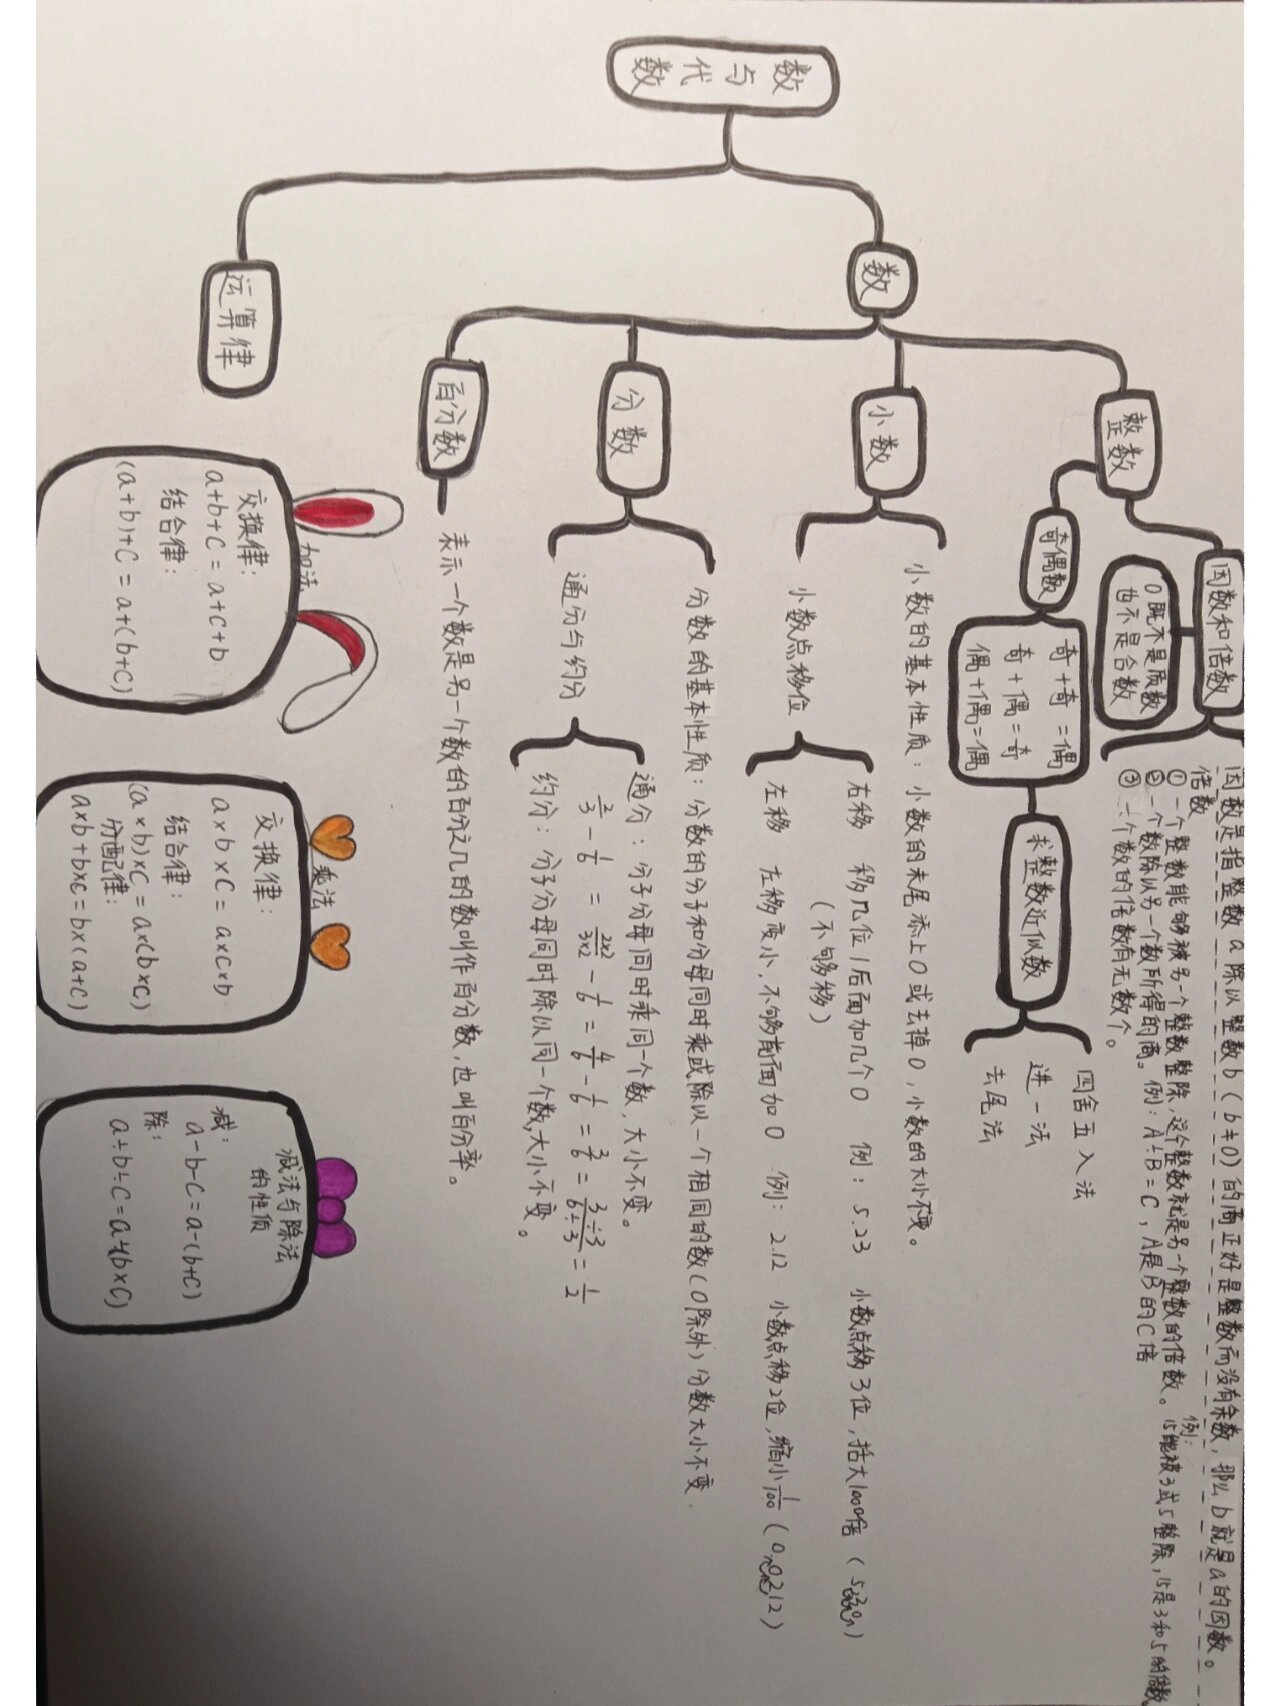 数与代数
数
整数
因数和倍数
0既不是质数
也不是合数
因数是指整数a除以整数b(b≠0)的商正好是整数而没有余数,那么b就是a的因数。
倍数
①一个整数能够被另一个整数整除,这个整数就是另一个整数的倍数。例:15能被3或5整除,15是3和5的倍数
②一个数除以另一个数所得的商。例:A÷B=C,A是B的C倍
③一个数的倍数有无数个。
奇偶数
奇+奇=偶
奇+偶=奇
偶+偶=偶
求整数近似数
四舍五入法
进一法
去尾法
小数
小数的基本性质:小数的末尾添上0或去掉0,小数的大小不变。
小数点移位
右移 移几位1后面加几个0 例:5.23 小数点移3位,括大1000倍
(不够移)
左移 左移变小,不够前面加0 例:2.12 小数点移2位,缩小1/100(0.0212)
分数
分数的基本性质:分数的分子和分母同时乘或除以一个相同的数(0除外)分数大小不变.
通分与约分
通分:分子分母同时乘同一个数,大小不变。
2/3-1/6=2×2/3×2-1/6=4/6-1/6=3/6=3÷3/6÷3=1/2
约分:分子分母同时除以同一个数,大小不变。
百分数
表示一个数是另一个数的百分之几的数叫作百分数,也叫百分率。
运算律
加法
交换律:
a+b+C=a+c+b
结合律:
(a+b)+C=a+(b+C)
乘法
交换律:
a×b×C=a×c×b
结合律:
(a×b)×C=a×(b×C)
分配律:
a×b+b×c=b×(a+C)
减法与除法
的性质
减:
a-b-C=a-(b+C)
除:
a÷b÷C=a÷(b×C)